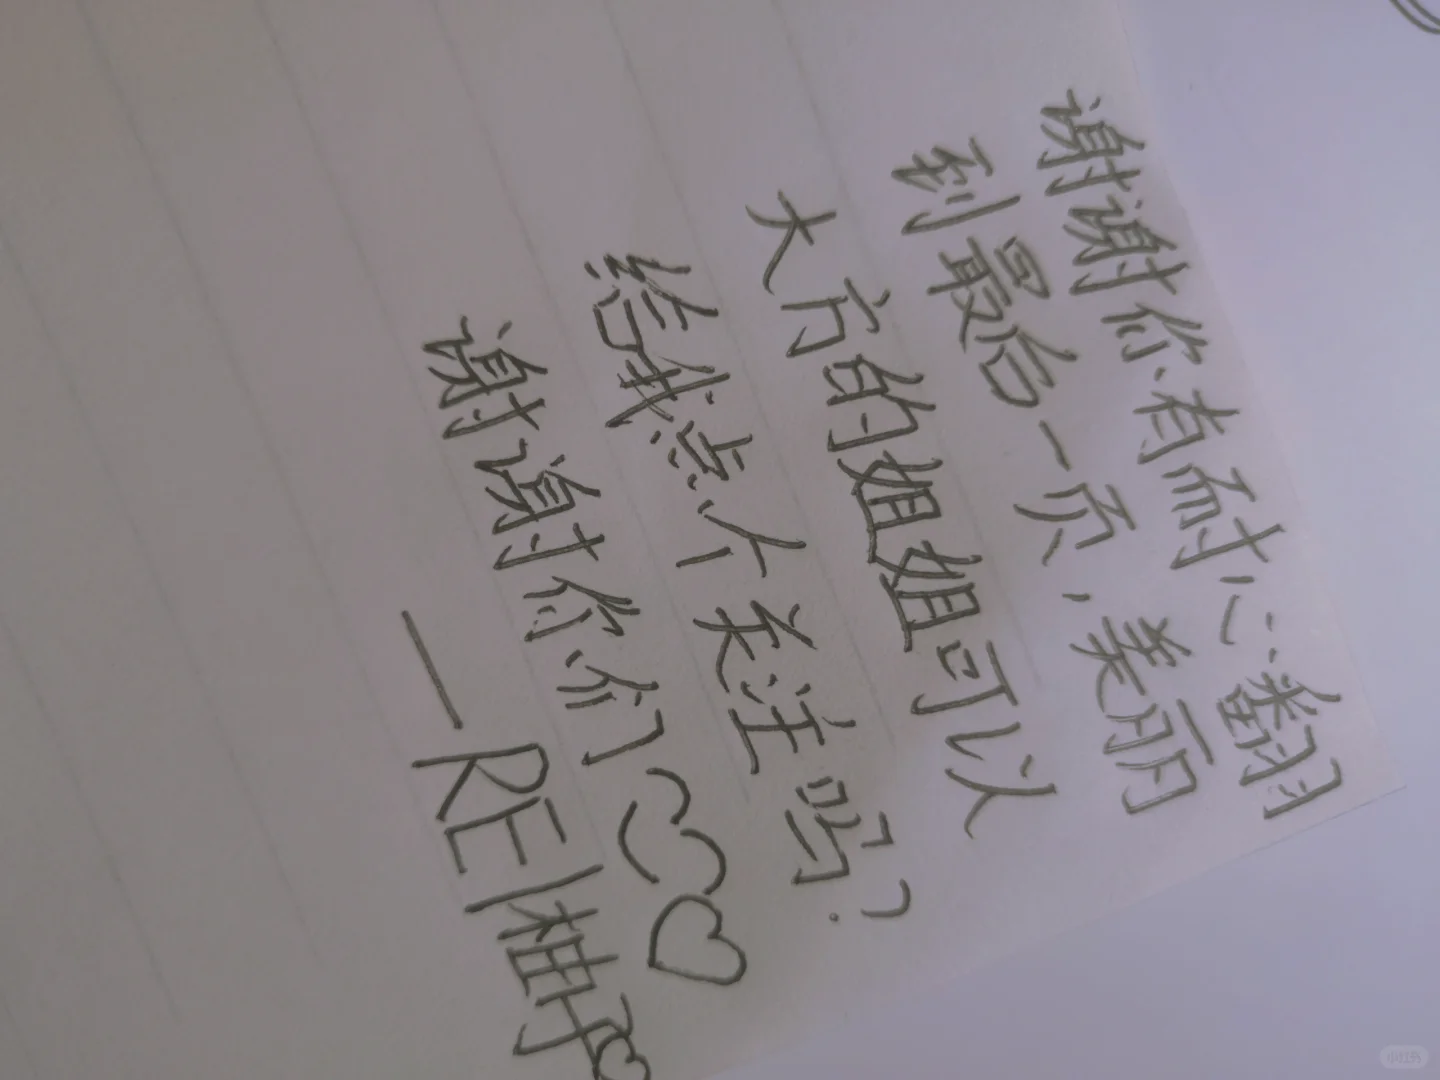 谢谢你有耐心翻
到最后一页，美丽
大方的姐姐可以
给我点个关注吗？
谢谢你们
—RE|柚子
小红书